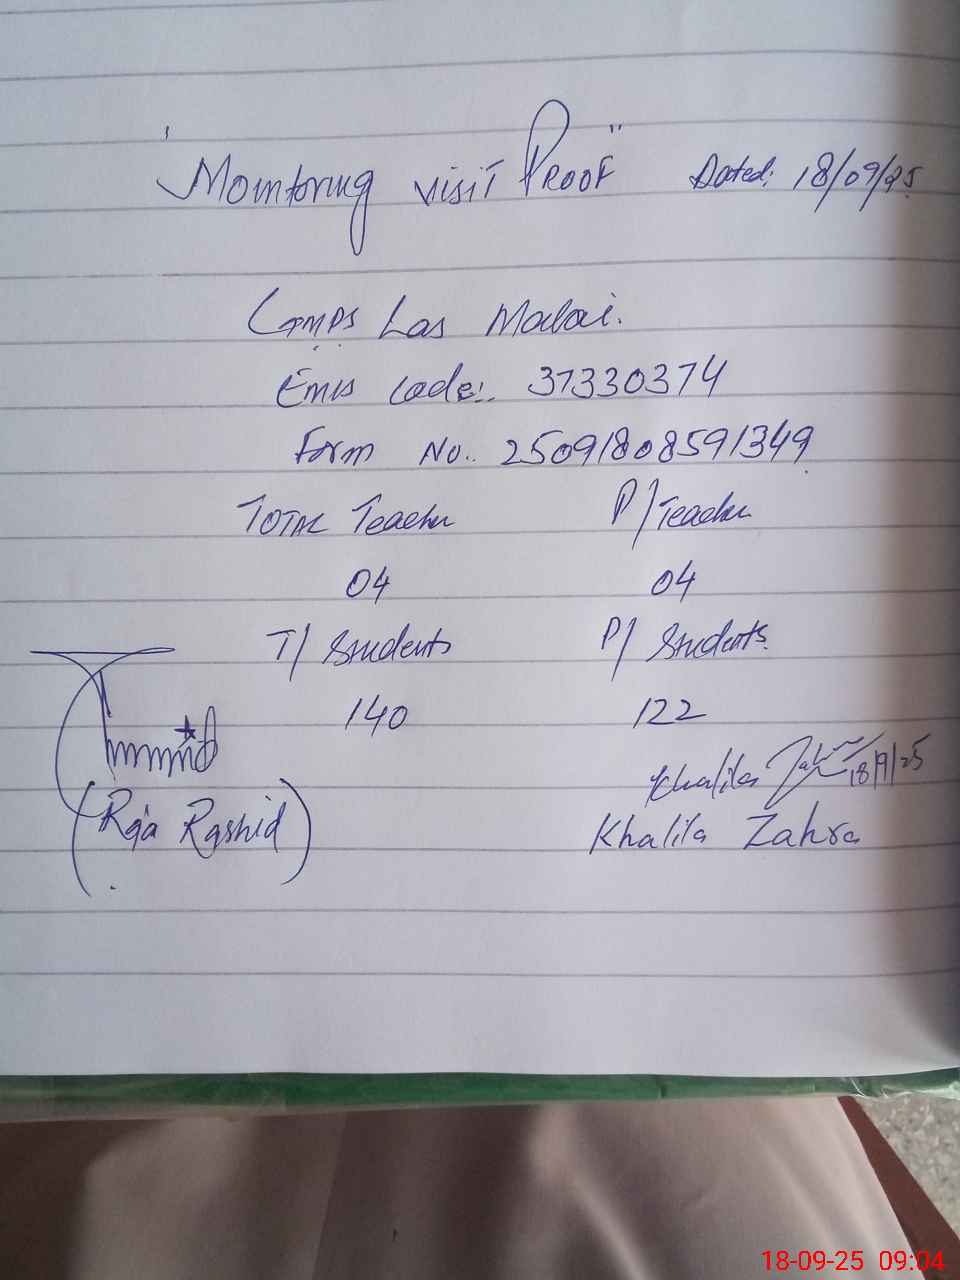 "Monitoring visit Proof" Dated: 18/09/25
GMPS Las Malai.
Emis Code:. 37330374
Form No.. 25091808591349
Total Teacher P/Teacher
04 04
T/ Students P/ Students
140 122
Khalila 18/9/25
(Raja Rashid) Khalila Zahra
18-09-25 09:04